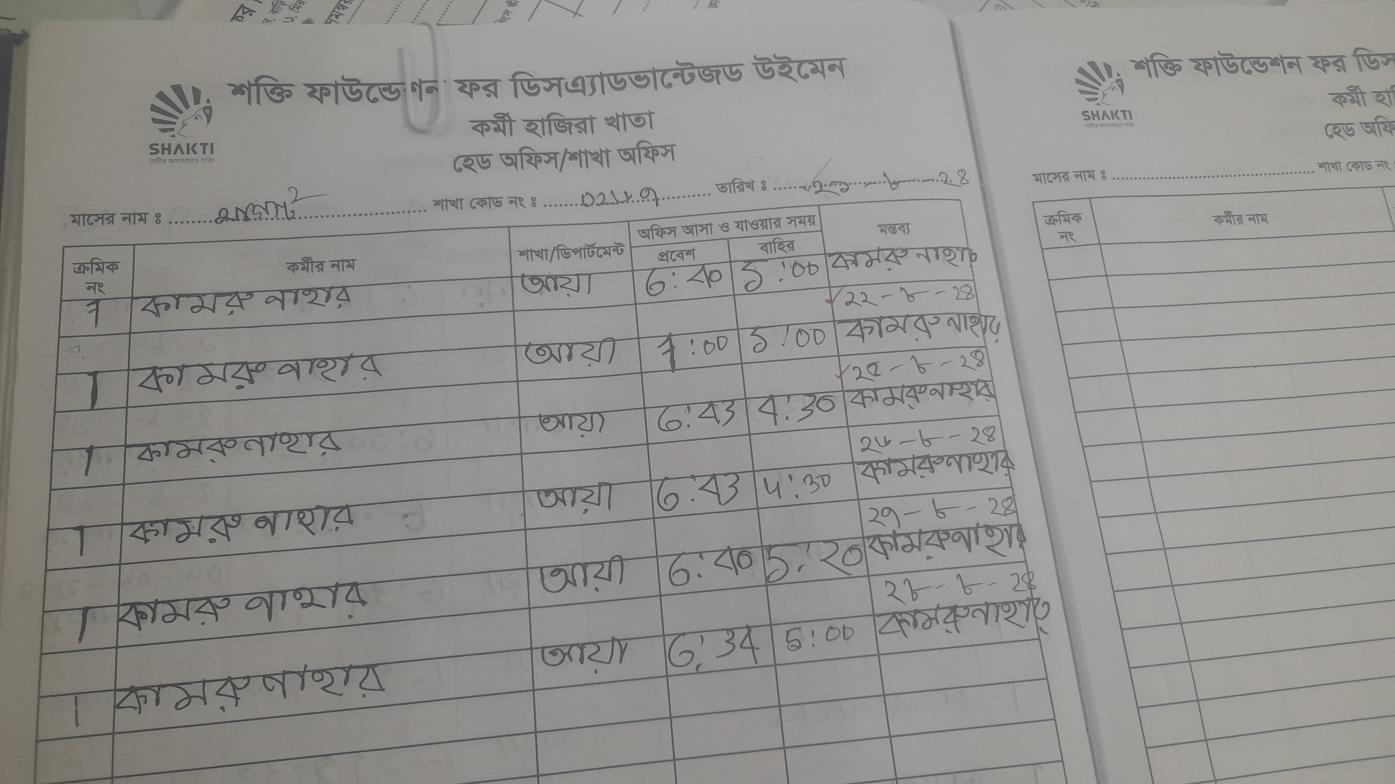 শক্তি ফাউন্ডেশন ফর ডিসএ্যাডভান্টেজড উইমেন
কর্মী হাজিরা খাতা
হেড অফিস/শাখা অফিস
SHAKTI
মাসের নাম : শাখা কোড নং : তারিখ : ২৪
ক্রমিক নং কর্মীর নাম শাখা/ডিপার্টমেন্ট অফিস আসা ও যাওয়ার সময় মন্তব্য
প্রবেশ বাহির
১ কামরু নাহার আয়া 6:40 5:00 কামরু নাহার
২২-৮-২৪
1 কামরু নাহার আয়া 7:00 5:00 কামরু নাহার
২৫-৮-২৪
1 কামরুনাহার আয়া 6:43 4:30 কামরুনাহার
২৬-৮-২৪
1 কামরু নাহার আয়া 6:43 4:30 কামরুনাহার
২৭-৮-২৪
1 কামরু নাহার আয়া 6:40 5:20 কামরুনাহার
২৮-৮-২৪
1 কামরুনাহার আয়া 6:34 5:00 কামরুনাহার
শক্তি ফাউন্ডেশন ফর
SHAKTI
কর্মী
হেড
মাসের নাম : শাখা কোড নং
ক্রমিক নং কর্মীর নাম